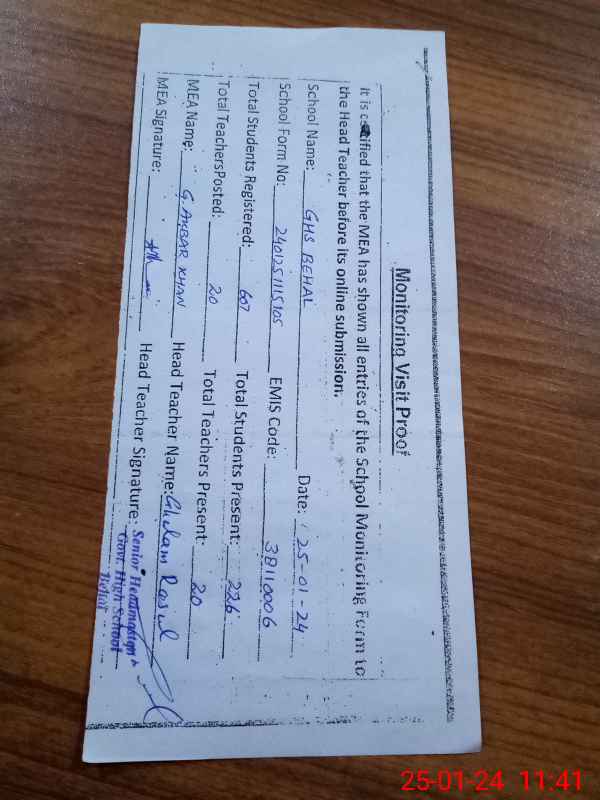 Monitoring Visit Proof
It is certified that the MEA has shown all entries of the School Monitoring Form to
the Head Teacher before its online submission.
School Name: GHS BEHAL Date: 25-01-24
School Form No: 2401251115105 EMIS Code: 38110006
Total Students Registered: 607 Total Students Present: 226
Total TeachersPosted: 20 Total Teachers Present: 20
MEA Name: G. AKBAR KHAN Head Teacher Name: Ghulam Rasul
MEA Signature: Head Teacher Signature:
Senior Headmaster
Govt. High School
Behal
25-01-24 11:41